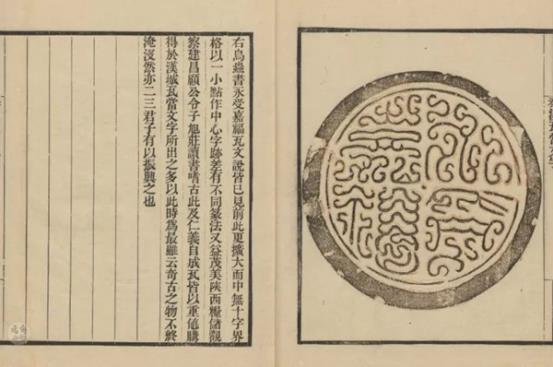 永受嘉福
右鳥蟲書永受嘉福瓦文說皆已見前此更擴大而中無十字界
格以一小點作中心字跡差有不同篆法又益茂美陝西糧儲觀
察建昌顧公令子旭莊讀書嗜古此及仁義自成瓦皆以重值購
得於漢城瓦當文字所出之多以此時爲最雖云奇古之物不終
淹沒然亦二三君子有以振興之也